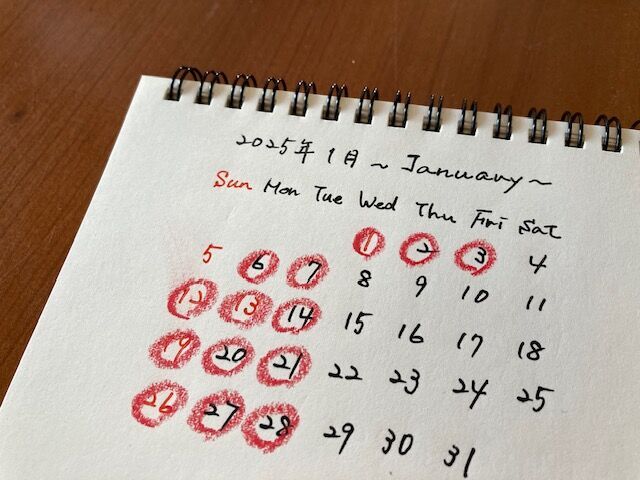 2025年1月~January~
Sun Mon Tue Wed Thu Fri Sat
1 2 3 4
5 6 7 8 9 10 11
12 13 14 15 16 17 18
19 20 21 22 23 24 25
26 27 28 29 30 31